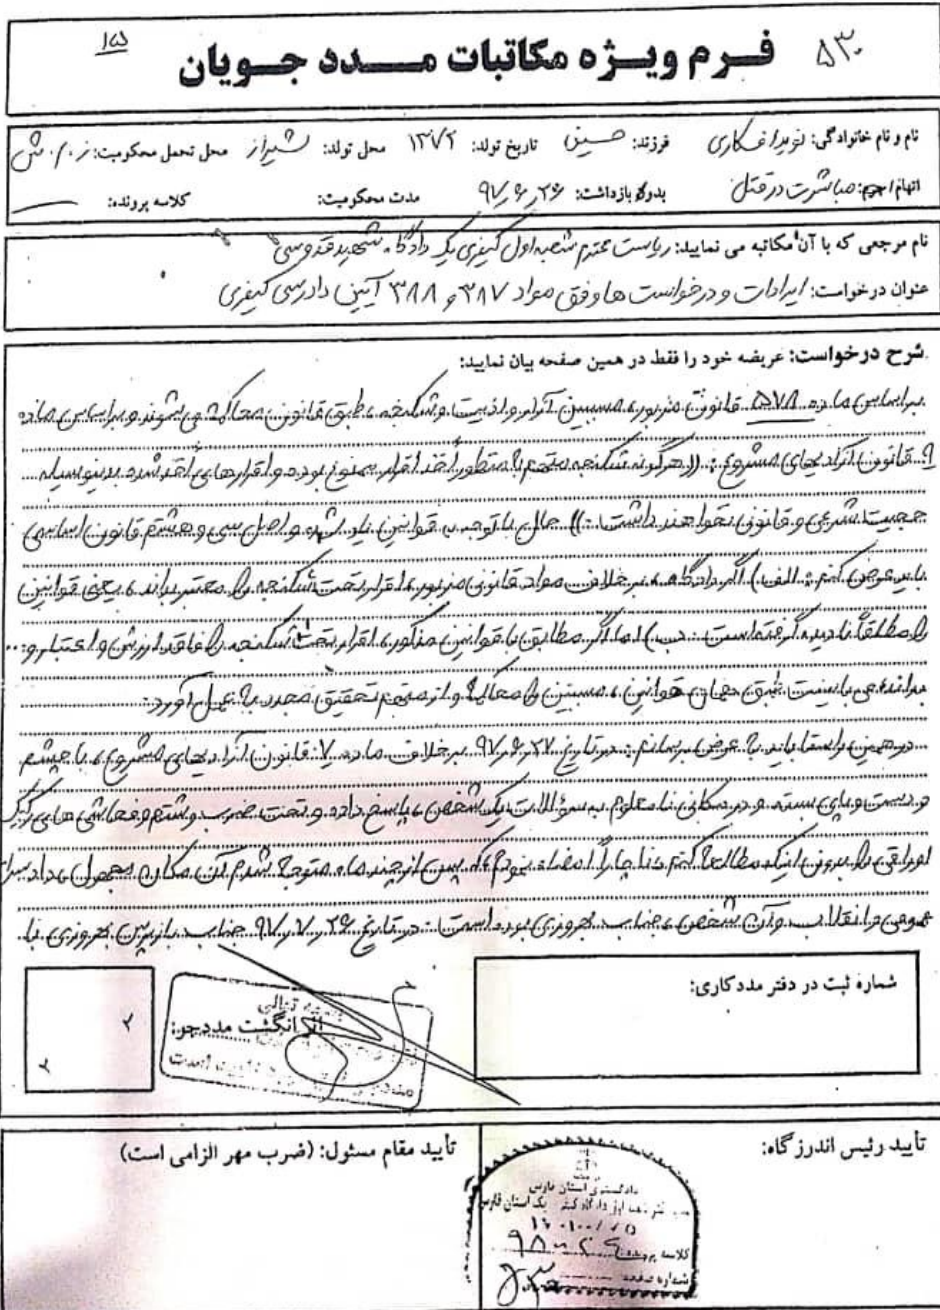 ۵۳۰
فرم ویژه مکاتبات مدد جویان
نام و نام خانوادگی: نوید افکاری فرزند: حسین تاریخ تولد: ۱۳۷۲ محل تولد: شیراز محل تحمل محکومیت: ز.ا.ش
اتهام/جرم: مباشرت در قتل بدو بازداشت: ۹۷٫۶٫۲۶ مدت محکومیت: کلاسه پرونده:
نام مرجعی که با آن مکاتبه می نمایید: ریاست محترم شعبه اول کیفری یک دادگاه شهید قدوسی
عنوان درخواست: ایرادات و درخواست ها وفق مواد ۳۸۷ و ۳۸۸ آئین دادرسی کیفری
شرح درخواست: عریضه خود را فقط در همین صفحه بیان نمایید:
براساس ماده ۵۷۸ قانون مزبور، مسببین آزار و اذیت و شکنجه، طبق قانون محاکمه می شوند و براساس ماده
۹ قانون آزادیهای مشروع: ((هرگونه شکنجه متهم به منظور أخذ اقرار ممنوع بوده و اقرارهای أخذ شده بدینوسیله
حجیت شرعی و قانونی نخواهند داشت.)) حال با توجه به قوانین یاد شده و اصل سی و هشتم قانون اساسی
باید عرض کنم: الف) اگر دادگاه، برخلاف مواد قانونی مزبور، اقرار تحت شکنجه را معتبر بداند، یعنی قوانین
را مطلقاً نادیده گرفته است. ب) اما اگر مطابق با قوانین مذکور، اقرار تحت شکنجه را فاقد ارزش و اعتبار و
بداند، می بایست طبق همان قوانین، مسببین را محاکمه و از متهم تحقیق مجدد به عمل آورد.
در همین راستا باید به عرض برسانم: در تاریخ ۹۷٫۶٫۲۷ برخلاف ماده ۷ قانون آزادیهای مشروع، با چشم
و دست و پای بسته و در مکانی نامعلوم به سؤالات یک شخص، پاسخ داده و تحت ضرب و شتم و فحاشی های رکیک
اوراقی را بدون اینکه مطالعه کنم، ناچاراً امضاء نمودم که پس از چند ماه متوجه شدم آن مکان مجهول، دادسرای
عمومی و انقلاب و آن شخص، جناب بهروزی بوده است. در تاریخ ۹۷٫۷٫۲۶ جناب بازپرس بهروزی با
شماره ثبت در دفتر مددکاری:
اثر انگشت مددجو:
تأیید رئیس اندرزگاه:
تأیید مقام مسئول: (ضرب مهر الزامی است)
دادگستری استان فارس
شعبه اول دادگاه کیفری یک استان فارس
کلاسه پرونده
شماره صفحه ۵۳۰